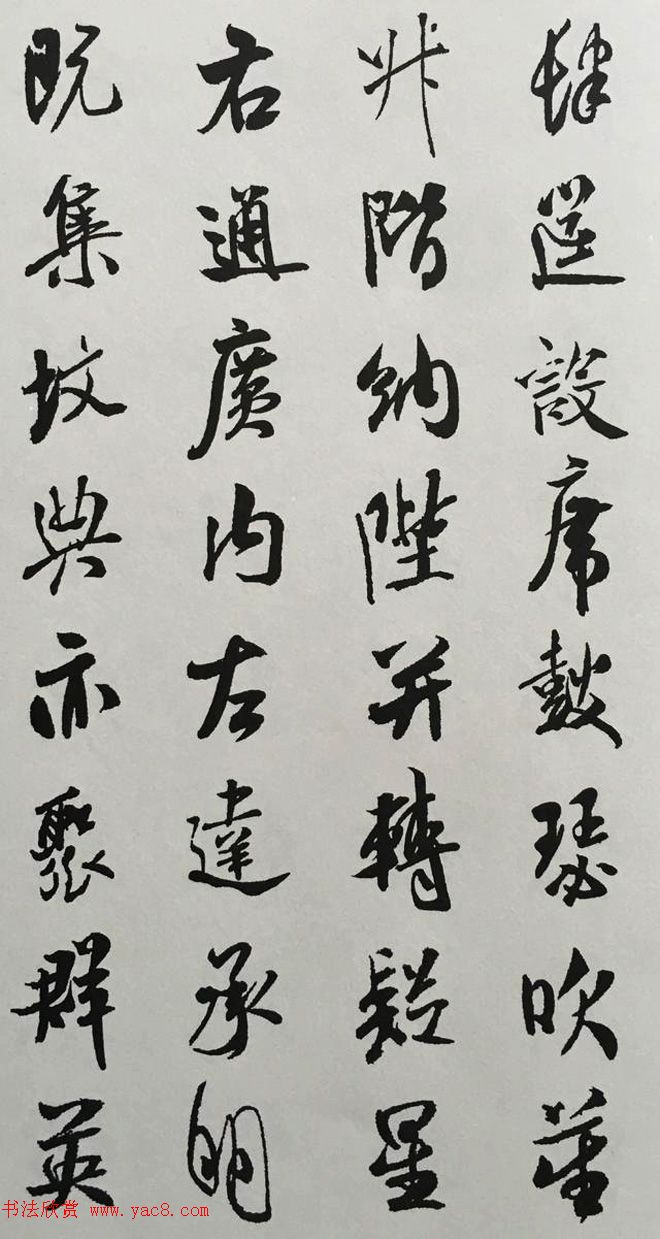 肆筵設席鼓瑟吹笙
升階納陛弁轉疑星
右通廣內左達承明
既集墳典亦聚群英
书法欣赏 www.yac8.com